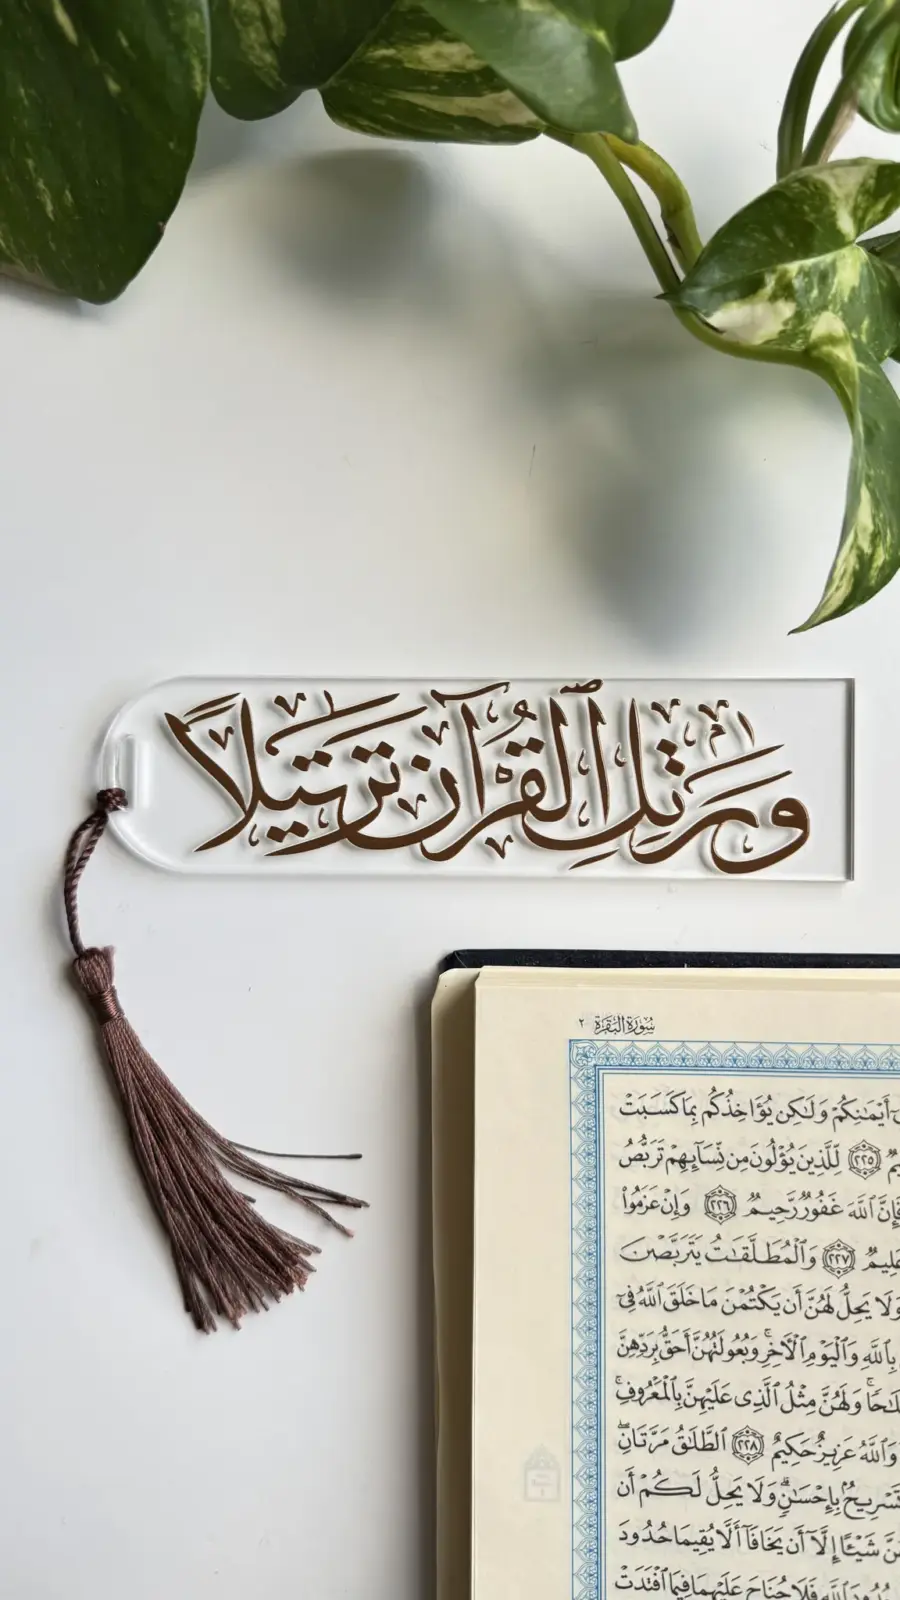 وَرَتِّلِ ٱلْقُرْآنَ تَرْتِيلًا
سُورَةُ البَقَرَةِ ٢
أَيْمَٰنِكُمْ وَلَٰكِن يُؤَاخِذُكُم بِمَا كَسَبَتْ
٢٢٥ لِّلَّذِينَ يُؤْلُونَ مِن نِّسَآئِهِمْ تَرَبُّصُ
فَإِنَّ ٱللَّهَ غَفُورٌ رَّحِيمٌ ٢٢٦ وَإِنْ عَزَمُوا۟
عَلِيمٌ ٢٢٧ وَٱلْمُطَلَّقَٰتُ يَتَرَبَّصْنَ
وَلَا يَحِلُّ لَهُنَّ أَن يَكْتُمْنَ مَا خَلَقَ ٱللَّهُ فِىٓ
بِٱللَّهِ وَٱلْيَوْمِ ٱلْأَخِرِ ۚ وَبُعُولَتُهُنَّ أَحَقُّ بِرَدِّهِنَّ
وَلَهُنَّ مِثْلُ ٱلَّذِى عَلَيْهِنَّ بِٱلْمَعْرُوفِ ۚ
وَٱللَّهُ عَزِيزٌ حَكِيمٌ ٢٢٨ ٱلطَّلَٰقُ مَرَّتَانِ ۖ
تَسْرِيحٌۢ بِإِحْسَٰنٍ ۗ وَلَا يَحِلُّ لَكُمْ أَن
شَيْـًٔا إِلَّآ أَن يَخَافَآ أَلَّا يُقِيمَا حُدُودَ
حُدُودَ ٱللَّهِ فَلَا جُنَاحَ عَلَيْهِمَا فِيمَا ٱفْتَدَتْ